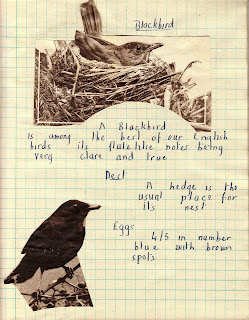 Blackbird
A Blackbird
is among the best of our English
birds its flutelike notes being
very clare and true
Nest
A hedge is the
usual place for
its nest
Eggs
4/5 in number
blue with brown
spots